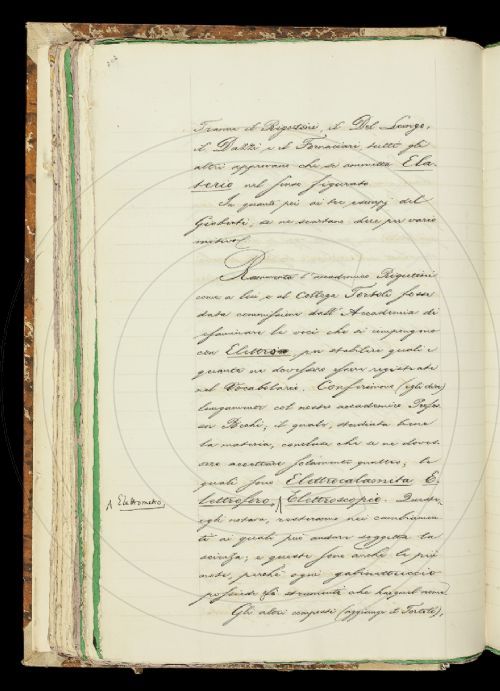 Tranne il Rigutini, il Del Lungo,
il Dalzzi e il Fornaciari, tutti gli
altri approvano che si ammetta Ela-
terio nel senso figurato.
In quanto poi ai tre esempj del
Gioberti, se ne scartano due per varie
Rammenta l'accademico Rigutini
come a lui e al Collega Tortoli fosse
data commissione dall'Accademia di
esaminare le voci che si compongono
con Elettro, per stabilire quali e
quante ne dovessero esser registrate
nel Vocabolario. Conferirono (egli dice)
lungamente col nostro accademico Profes-
sor Bechi, il quale, studiata bene
la materia, concluse che se ne doves-
sero accettare solamente quattro; le
quali sono Elettrocalamita, E-
lettroforo, Elettroscopio. Queste,
Elettrometro,
egli notava, resteranno nei cambiamen-
ti ai quali può andare soggetta la
scienza; e queste sono anche le più
note, perché ogni gabinettuccio
possiede gli strumenti che hanno quel nome.
Gli altri composti (aggiunge il Tortoli),